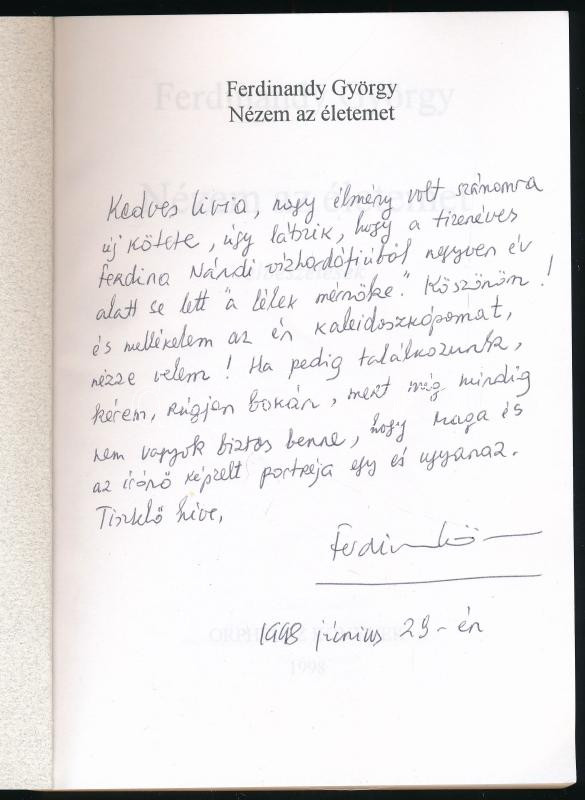 Ferdinandy György
Nézem az életemet
Kedves Livia, nagy élmény volt számomra
új kötete, úgy látszik, hogy a tizenéves
Ferdina Nándi vízhordófiúból negyven év
alatt se lett "a lélek mérnöke." Köszönöm!
és mellékelem az én kaleidoszkópomat,
nézze velem! Ha pedig találkozunk,
kérem, rúgjon bokán, mert még mindig
nem vagyok biztos benne, hogy Maga és
az írónő képzelt portréja egy és ugyanaz.
Tisztelő híve,
1998 június 29-én
1998